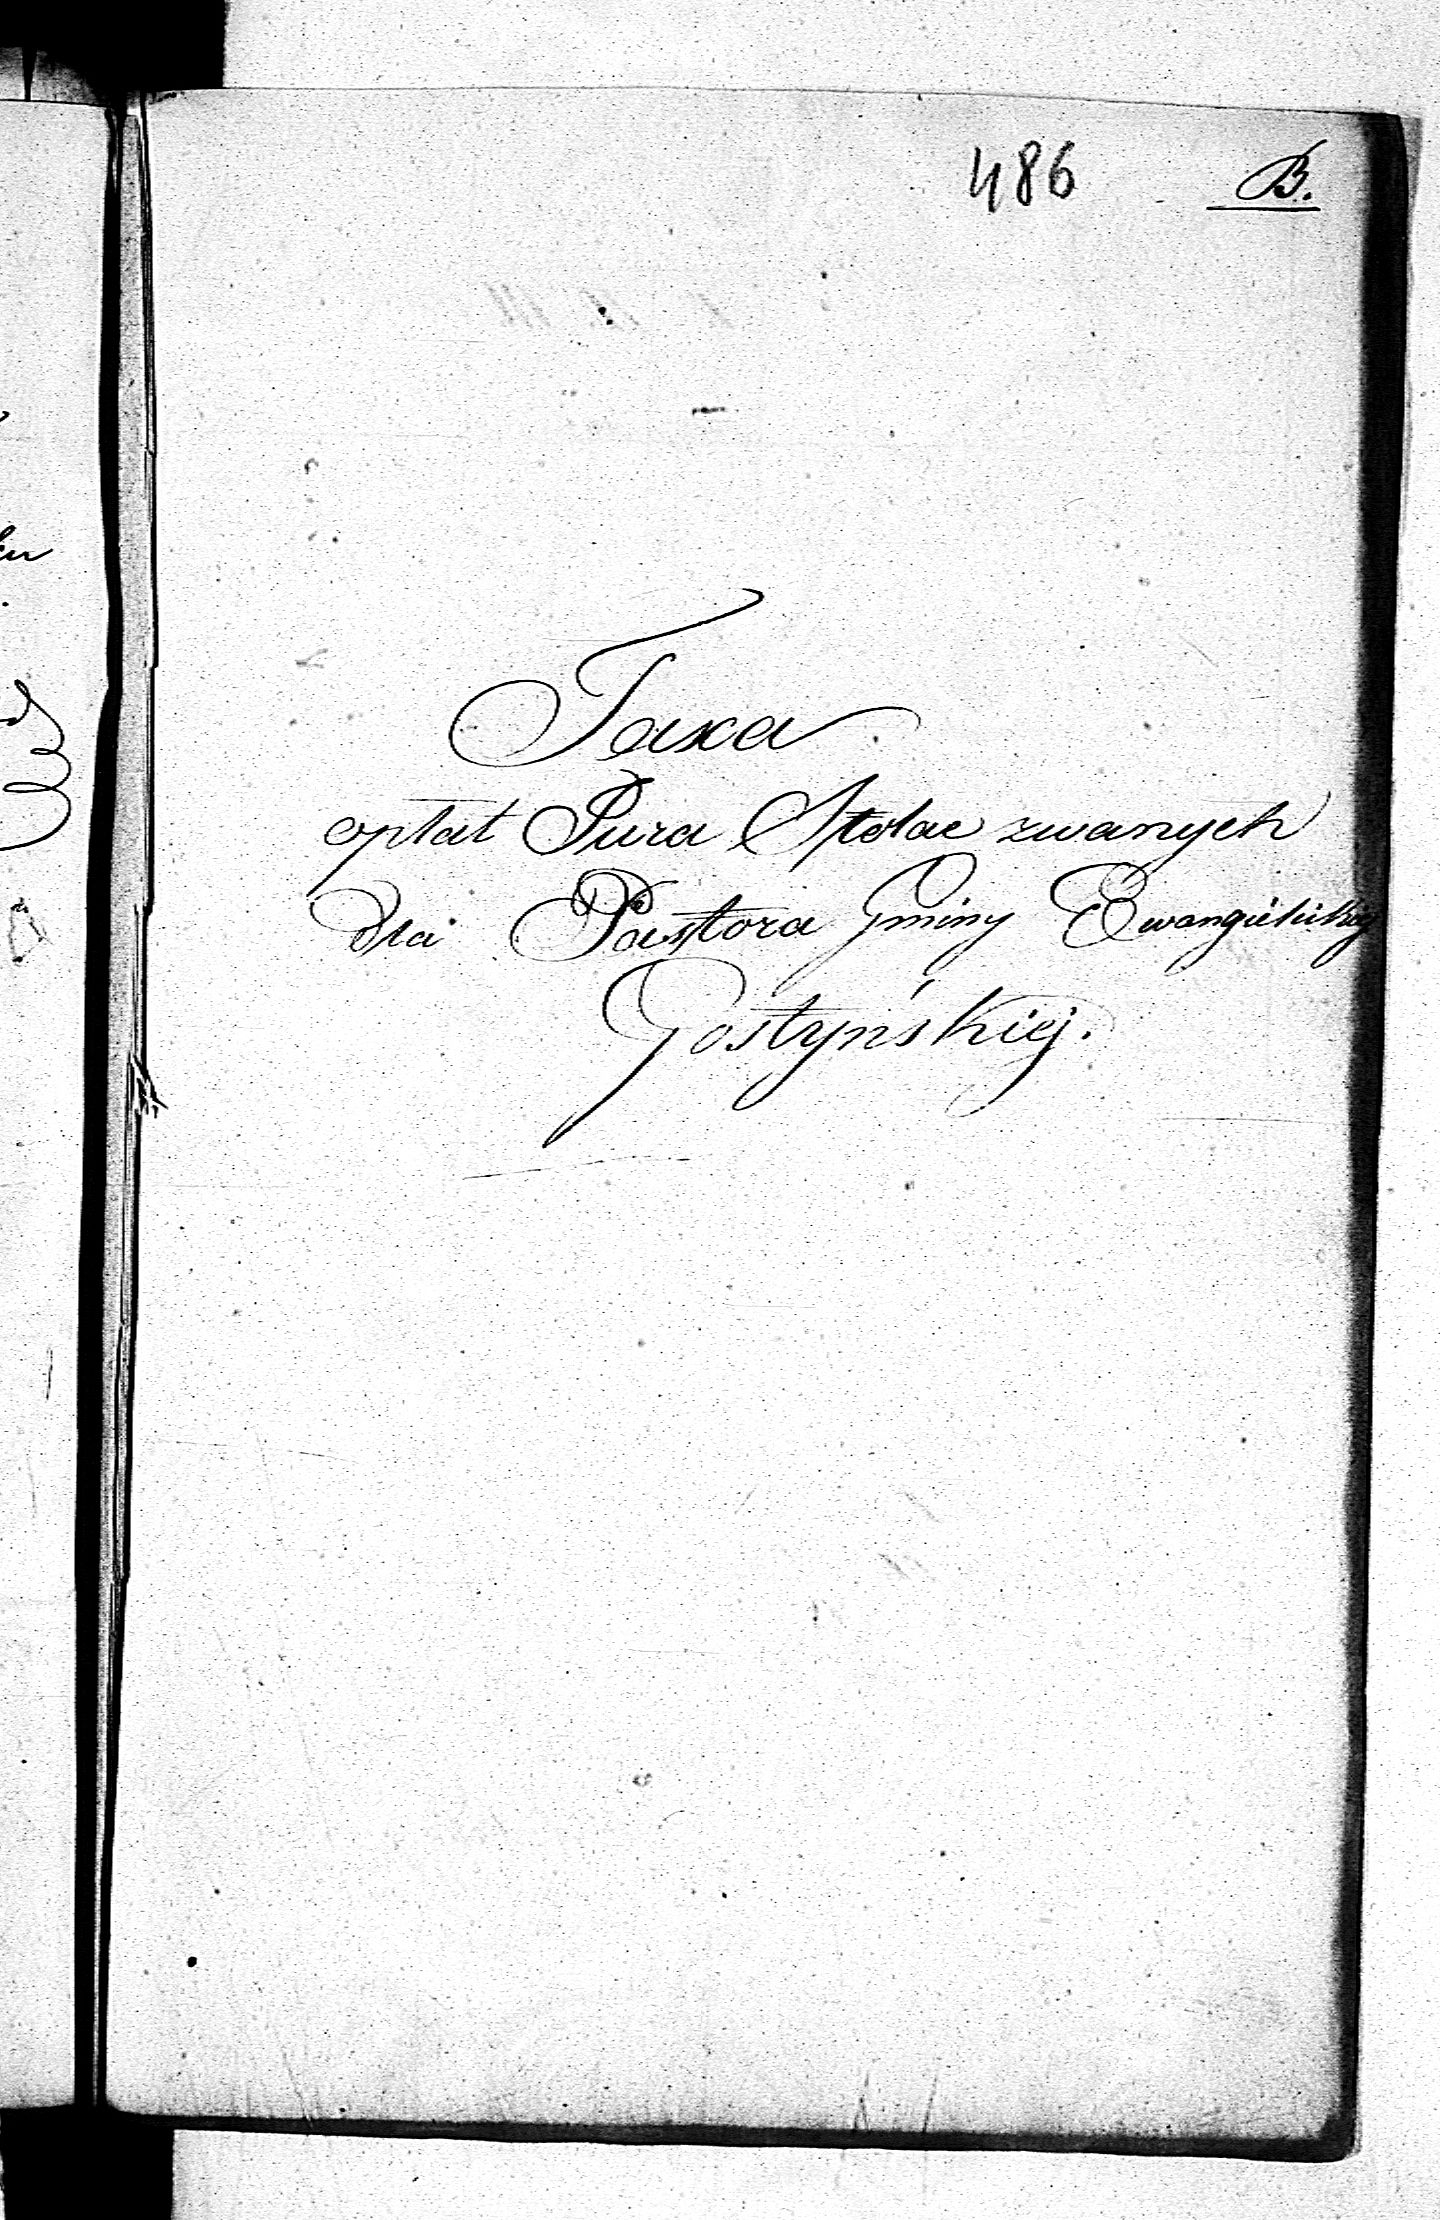 486 B.
Taxa
opłat Jura Stolae zwanych
dla Pastora Gminy Ewangielickiej
Gostyńskiej.